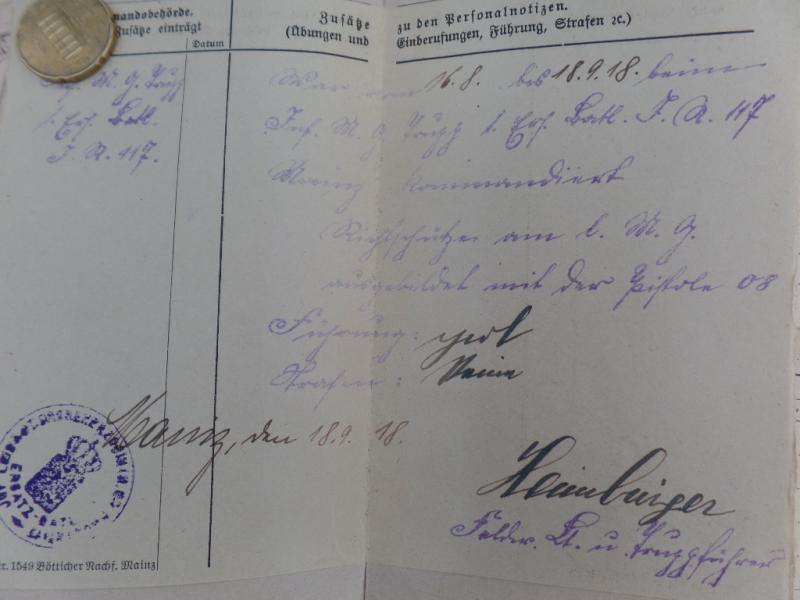 mandobehörde.
Zusätze einträgt
Datum
Zusätze zu den Personalnotizen.
(Übungen und Einberufungen, Führung, Strafen ꝛc.)
M. G. Trupp
1. Ers. Batl.
I. R. 117.
War vom 16.8. bis 18.9.18. beim
Inf. M. G. Trupp 1. Ers. Batl. I. R. 117
Mainz kommandiert
Richtschütze am l. M. G.
ausgebildet mit der Pistole 08
Führung: gut
Strafen: Keine
Mainz, den 18.9.18.
Heimburger
Feldw. Lt. u. Truppführer
ERSATZ-BATL
1549 Bötticher Nachf. Mainz